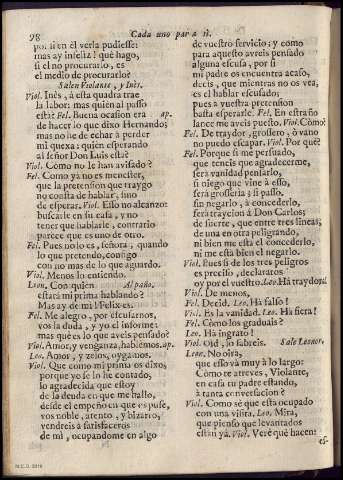 98 Cada uno para sí.
por si en él verla pudiesse:
mas ay infeliz! què hago,
si el no procurarlo, es
el medio de procurarlo?
Salen Violante, y Inès.
Viol. Inès, à esta quadra trae
la labor: mas quien al passo
està? Fel. Buena ocasion era ap.
de hacer lo que dixo Hernando;
mas no he de echar à perder
mi quexa: quien esperando
al señor Don Luis està?
Viol. Como no le han avisado?
Fel. Como yà no es menester,
que la pretension que traygo
no consta de hablar, sino
de esperar. Viol. Esso no alcanzo:
buscarle en su casa, y no
tener que hablarle, contrario
parece que es uno de otro.
Fel. Pues no lo es, señora, quando
lo que pretendo, consigo
con no mas de lo que aguardo.
Viol. Menos lo entiendo.
Leon. Con quièn Al paño.
estarà mi prima hablando?
Mas ay de mi! Felix es.
Fel. Me alegro, por escusarnos,
vos la duda, y yo el informe:
mas què es lo que aveis pensado?
Viol. Amor, y venganza, hablèmos. ap.
Leo. Amor, y zelos, oygamos.
Viol. Que como mi prima os dixo,
porque yo se lo he contado,
lo agradecida que estoy
de la deuda en que me hallo,
desde el empeño en que os puse,
vos noble, atento, y bizarro,
vendreis à satisfaceros
de mi, ocupandome en algo
de vuestro servicio; y como
para aquesto avreis pensado
alguna escusa, por si
mi padre os encuentra acaso,
decis, que mientras no os vea,
es el hablar escusado;
pues à vuestra pretension
basta esperarle. Fel. En estraño
lance me aveis puesto. Viol. Còmo?
Fel. De traydor, grossero, ò vano
no puedo escapar. Viol. Por què?
Fel. Porque si me persuado,
que teneis que agradecerme,
serà vanidad pensarlo,
si niego que vine à esso,
serà grosseria; y si passo,
sin negarlo, à concederlo,
serà traycion à Don Carlos;
de suerte, que entre tres lineas,
de una en otra peligrando,
ni bien me està el concederlo,
ni me està bien el negarlo.
Viol. Pues si de los tres peligros
es preciso, declararos
oy por el vuestro. Leo. Hà traydora!
Viol. De menos,
Fel. Decid. Leo. Hà falso!
Viol. Es la vanidad. Leo. Hà fiera!
Fel. Còmo los graduais?
Leo. Hà ingrato!
Viol. Oìd, lo sabreis. Sale Leonor.
Leon. No oìra,
que esso và muy à lo largo:
Còmo te atreves, Violante,
en casa tu padre estando,
à tanta conversacion?
Viol. Como sè que està ocupado
con una visita. Leo. Mira,
que pienso que levantados
estàn ya. Viol. Verè què hacen:
es-